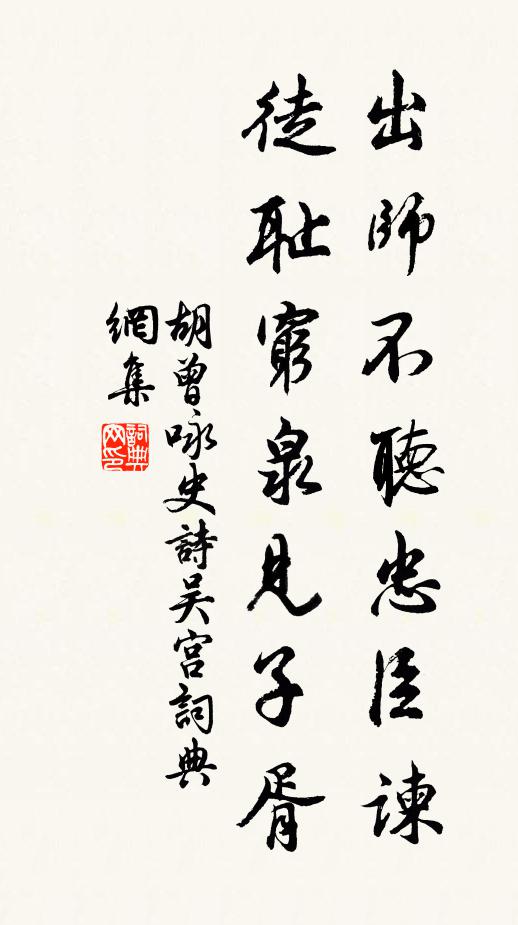 出師不聽忠臣諫
徒恥窮泉見子胥
胡曾咏史詩吴宫詞典
網集
詞典
网印